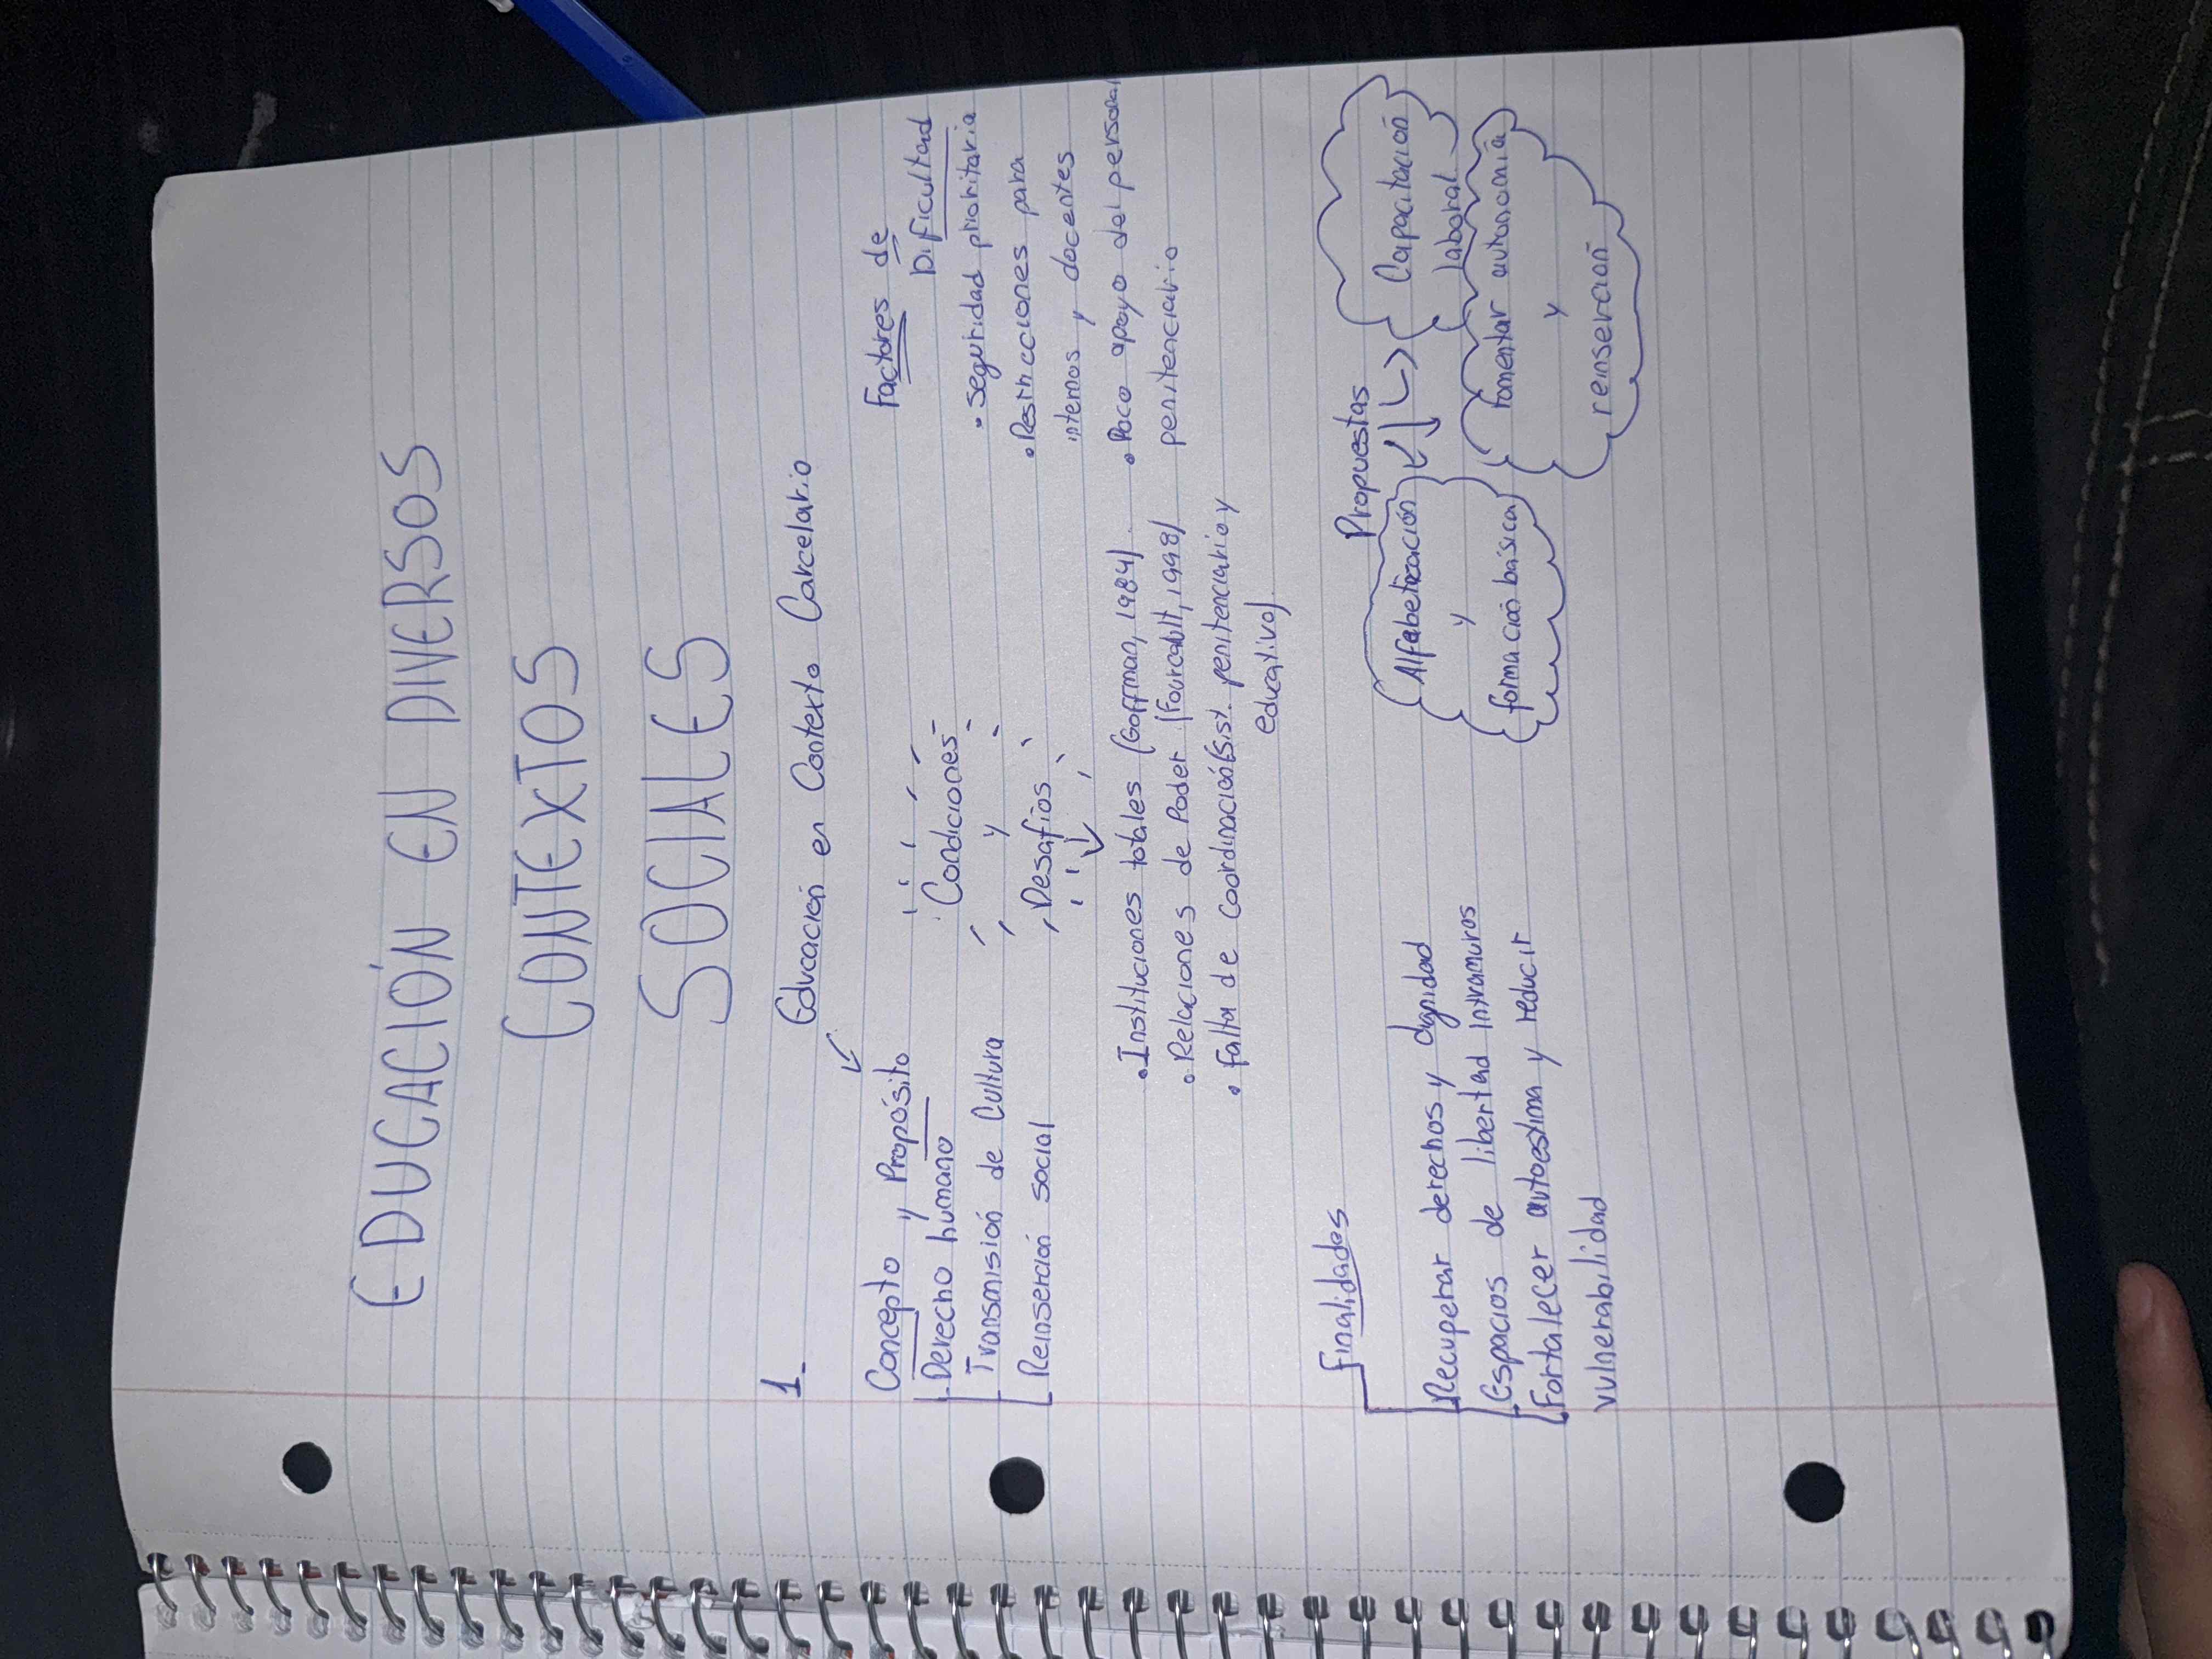 EDUCACIÓN EN DIVERSOS
CONTEXTOS
SOCIALES
1- Educación en Contexto Carcelario
Concepto y Propósito
Derecho humano
Transmisión de Cultura
Reinserción social
Condiciones
y
Desafíos
Factores de
Dificultad
• Seguridad prioritaria
• Restricciones para
internos y docentes
• Poco apoyo del personal
penitenciario
• Instituciones totales (Goffman, 1984)
• Relaciones de Poder (Fourcablt, 1998)
• Falta de Coordinación (Sist. penitenciario y
educativo)
Finalidades
Recuperar derechos y dignidad
Espacios de libertad Intramuros
Fortalecer autoestima y reducir
vulnerabilidad
Propuestas
Alfabetización
y
formación básica
Capacitación
laboral
Fomentar autonomía
y
reinserción